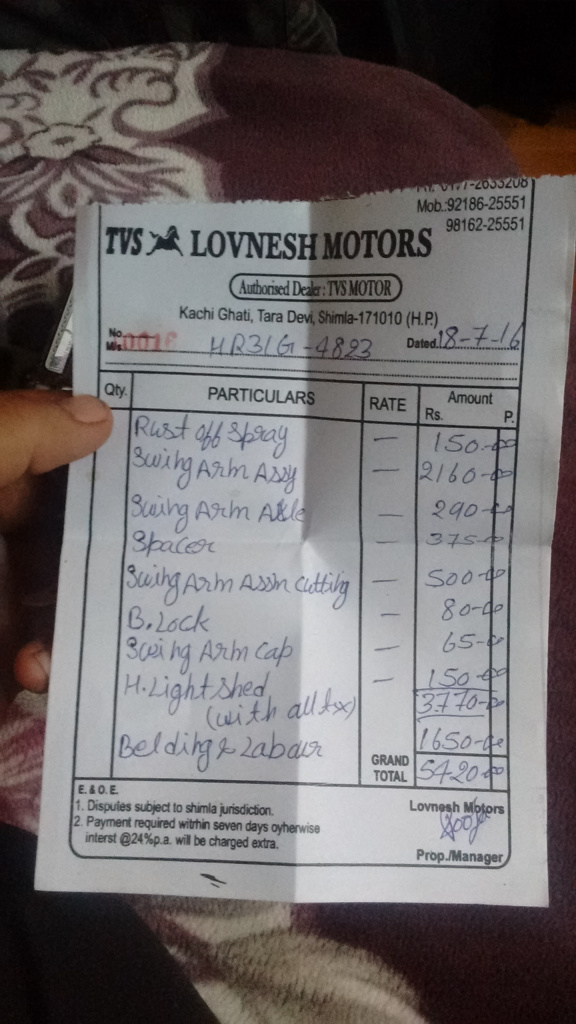 Ph. 0177-2633208
Mob.:92186-25551
98162-25551
TVS LOVNESH MOTORS
Authorised Dealer : TVS MOTOR
Kachi Ghati, Tara Devi, Shimla-171010 (H.P.)
No. Dated. 18-7-16
M/s. HR31G-4823
Qty. PARTICULARS RATE Amount
Rs. P.
Rust off Spray — 150-00
Swing Arm Assy — 2160-00
Swing Arm Axle — 290-00
Spacer — 375-00
Swing Arm Assm Cutting — 500-00
B. Lock — 80-00
Swing Arm Cap — 65-00
H. Light Shed — 150-00
(with all tax) 3770-00
Belding & Labour 1650-00
GRAND TOTAL 5420-00
E. & O. E.
1. Disputes subject to shimla jurisdiction.
2. Payment required witrhin seven days oyherwise
interst @24%p.a. will be charged extra.
Lovnesh Motors
Prop./Manager